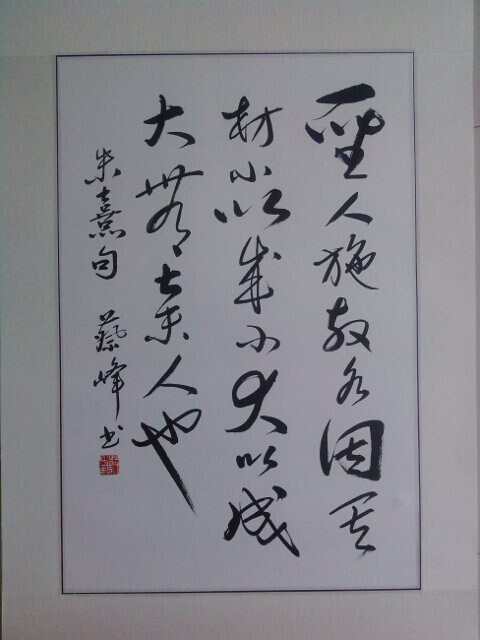 聖人施教各因其
材小以成小大以成
大無棄人也
朱熹句 蔡峰书